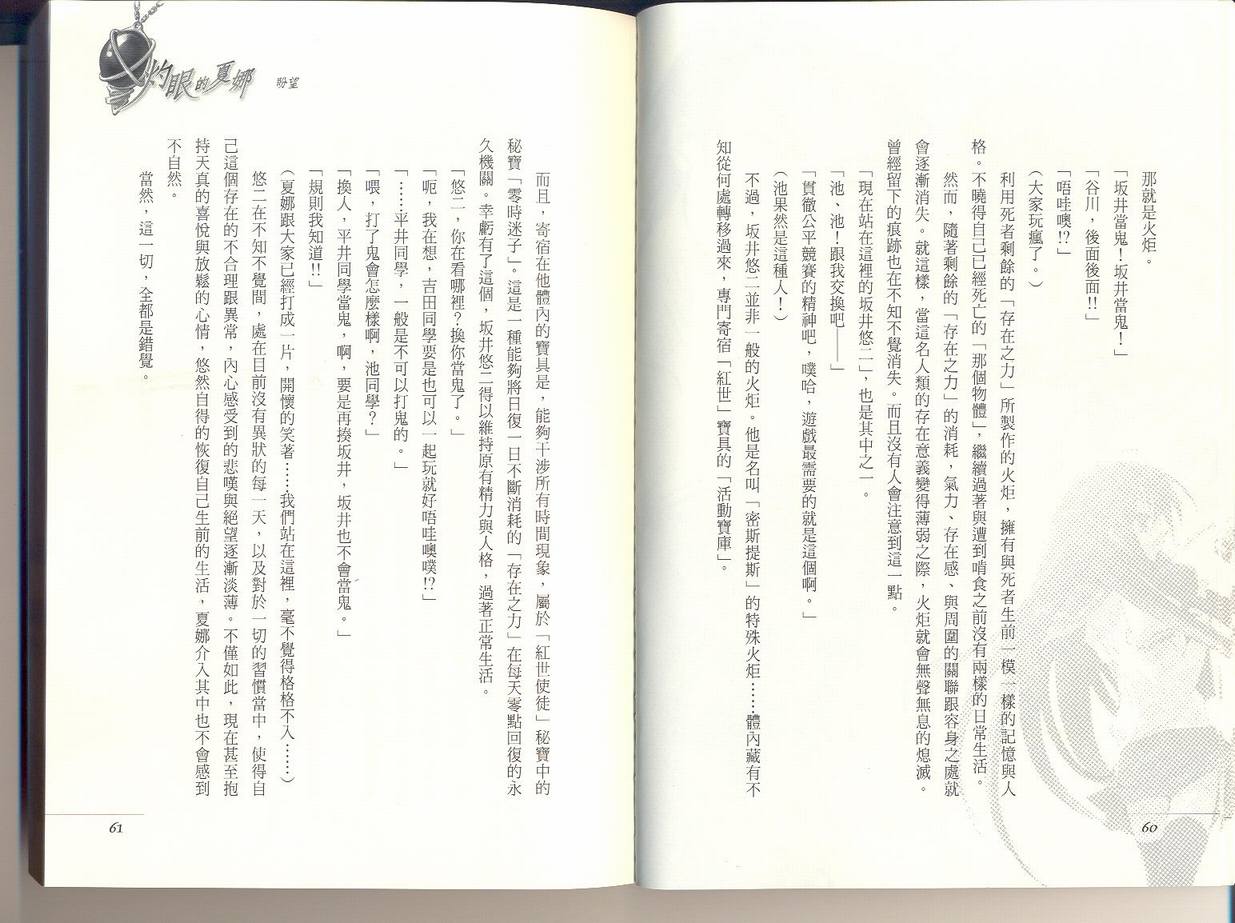 那就是火炬。
「坂井當鬼！坂井當鬼！」
「谷川，後面後面!!」
「唔哇噢!?」
（大家玩瘋了。）
利用死者剩餘的「存在之力」所製作的火炬，擁有與死者生前一模一樣的記憶與人
格。不曉得自己已經死亡的「那個物體」，繼續過著與遭到啃食之前沒有兩樣的日常生活。
然而，隨著剩餘的「存在之力」的消耗，氣力、存在感、與周圍的關聯跟容身之處就
會逐漸消失。就這樣，當這名人類的存在意義變得薄弱之際，火炬就會無聲無息的熄滅。
曾經留下的痕跡也在不知不覺消失。而且沒有人會注意到這一點。
「現在站在這裡的坂井悠二」，也是其中之一。
「池、池！跟我交換吧——」
「貫徹公平競賽的精神吧，噗哈，遊戲最需要的就是這個啊。」
（池果然是這種人！）
不過，坂井悠二並非一般的火炬。他是名叫「密斯提斯」的特殊火炬……體內藏有不
知從何處轉移過來，專門寄宿「紅世」寶具的「活動寶庫」。
60
灼眼的夏娜 盼望
而且，寄宿在他體內的寶具是，能夠干涉所有時間現象，屬於「紅世使徒」秘寶中的
秘寶「零時迷子」。這是一種能夠將日復一日不斷消耗的「存在之力」在每天零點回復的永
久機關。幸虧有了這個，坂井悠二得以維持原有精力與人格，過著正常生活。
「悠二，你在看哪裡？換你當鬼了。」
「呃，我在想，吉田同學要是也可以一起玩就好唔哇噢噗!?」
「……平井同學，一般是不可以打鬼的。」
「喂，打了鬼會怎麼樣啊，池同學？」
「換人，平井同學當鬼，啊，要是再揍坂井，坂井也不會當鬼。」
「規則我知道!!」
（夏娜跟大家已經打成一片，開懷的笑著……我們站在這裡，毫不覺得格格不入……）
悠二在不知不覺間，處在目前沒有異狀的每一天，以及對於一切的習慣當中，使得自
己這個存在的不合理跟異常，內心感受到的悲嘆與絕望逐漸淡薄。不僅如此，現在甚至抱
持天真的喜悅與放鬆的心情，悠然自得的恢復自己生前的生活，夏娜介入其中也不會感到
不自然。
當然，這一切，全都是錯覺。
61